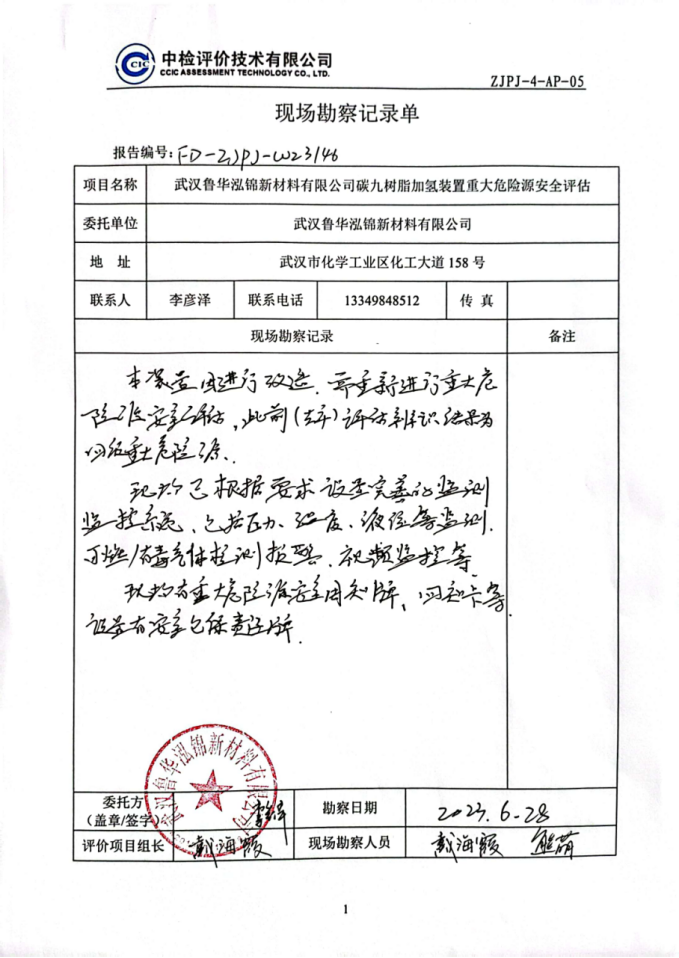 CCIC
中检评价技术有限公司
CCIC ASSESSMENT TECHNOLOGY CO., LTD.
ZJPJ-4-AP-05
现场勘察记录单
报告编号：FD-ZJPJ-W23146
项目名称 武汉鲁华泓锦新材料有限公司碳九树脂加氢装置重大危险源安全评估
委托单位 武汉鲁华泓锦新材料有限公司
地 址 武汉市化学工业区化工大道 158 号
联系人 李彦泽 联系电话 13349848512 传 真
现场勘察记录 备注
本装置因进行改造，需重新进行重大危
险源安全评估，此前（去年）评估辨识结果为
四级重大危险源。
现场已根据要求设置完善的监测
监控系统，包括压力、温度、液位等监测，
可燃/有毒气体检测报警、视频监控等
现场有重大危险源安全周知牌，
设置有安全包保责任牌
武汉鲁华泓锦新材料有限公司
委托方
（盖章/签字） 勘察日期 2023.6.28
评价项目组长 戴海霞 现场勘察人员 戴海霞 熊萌
1